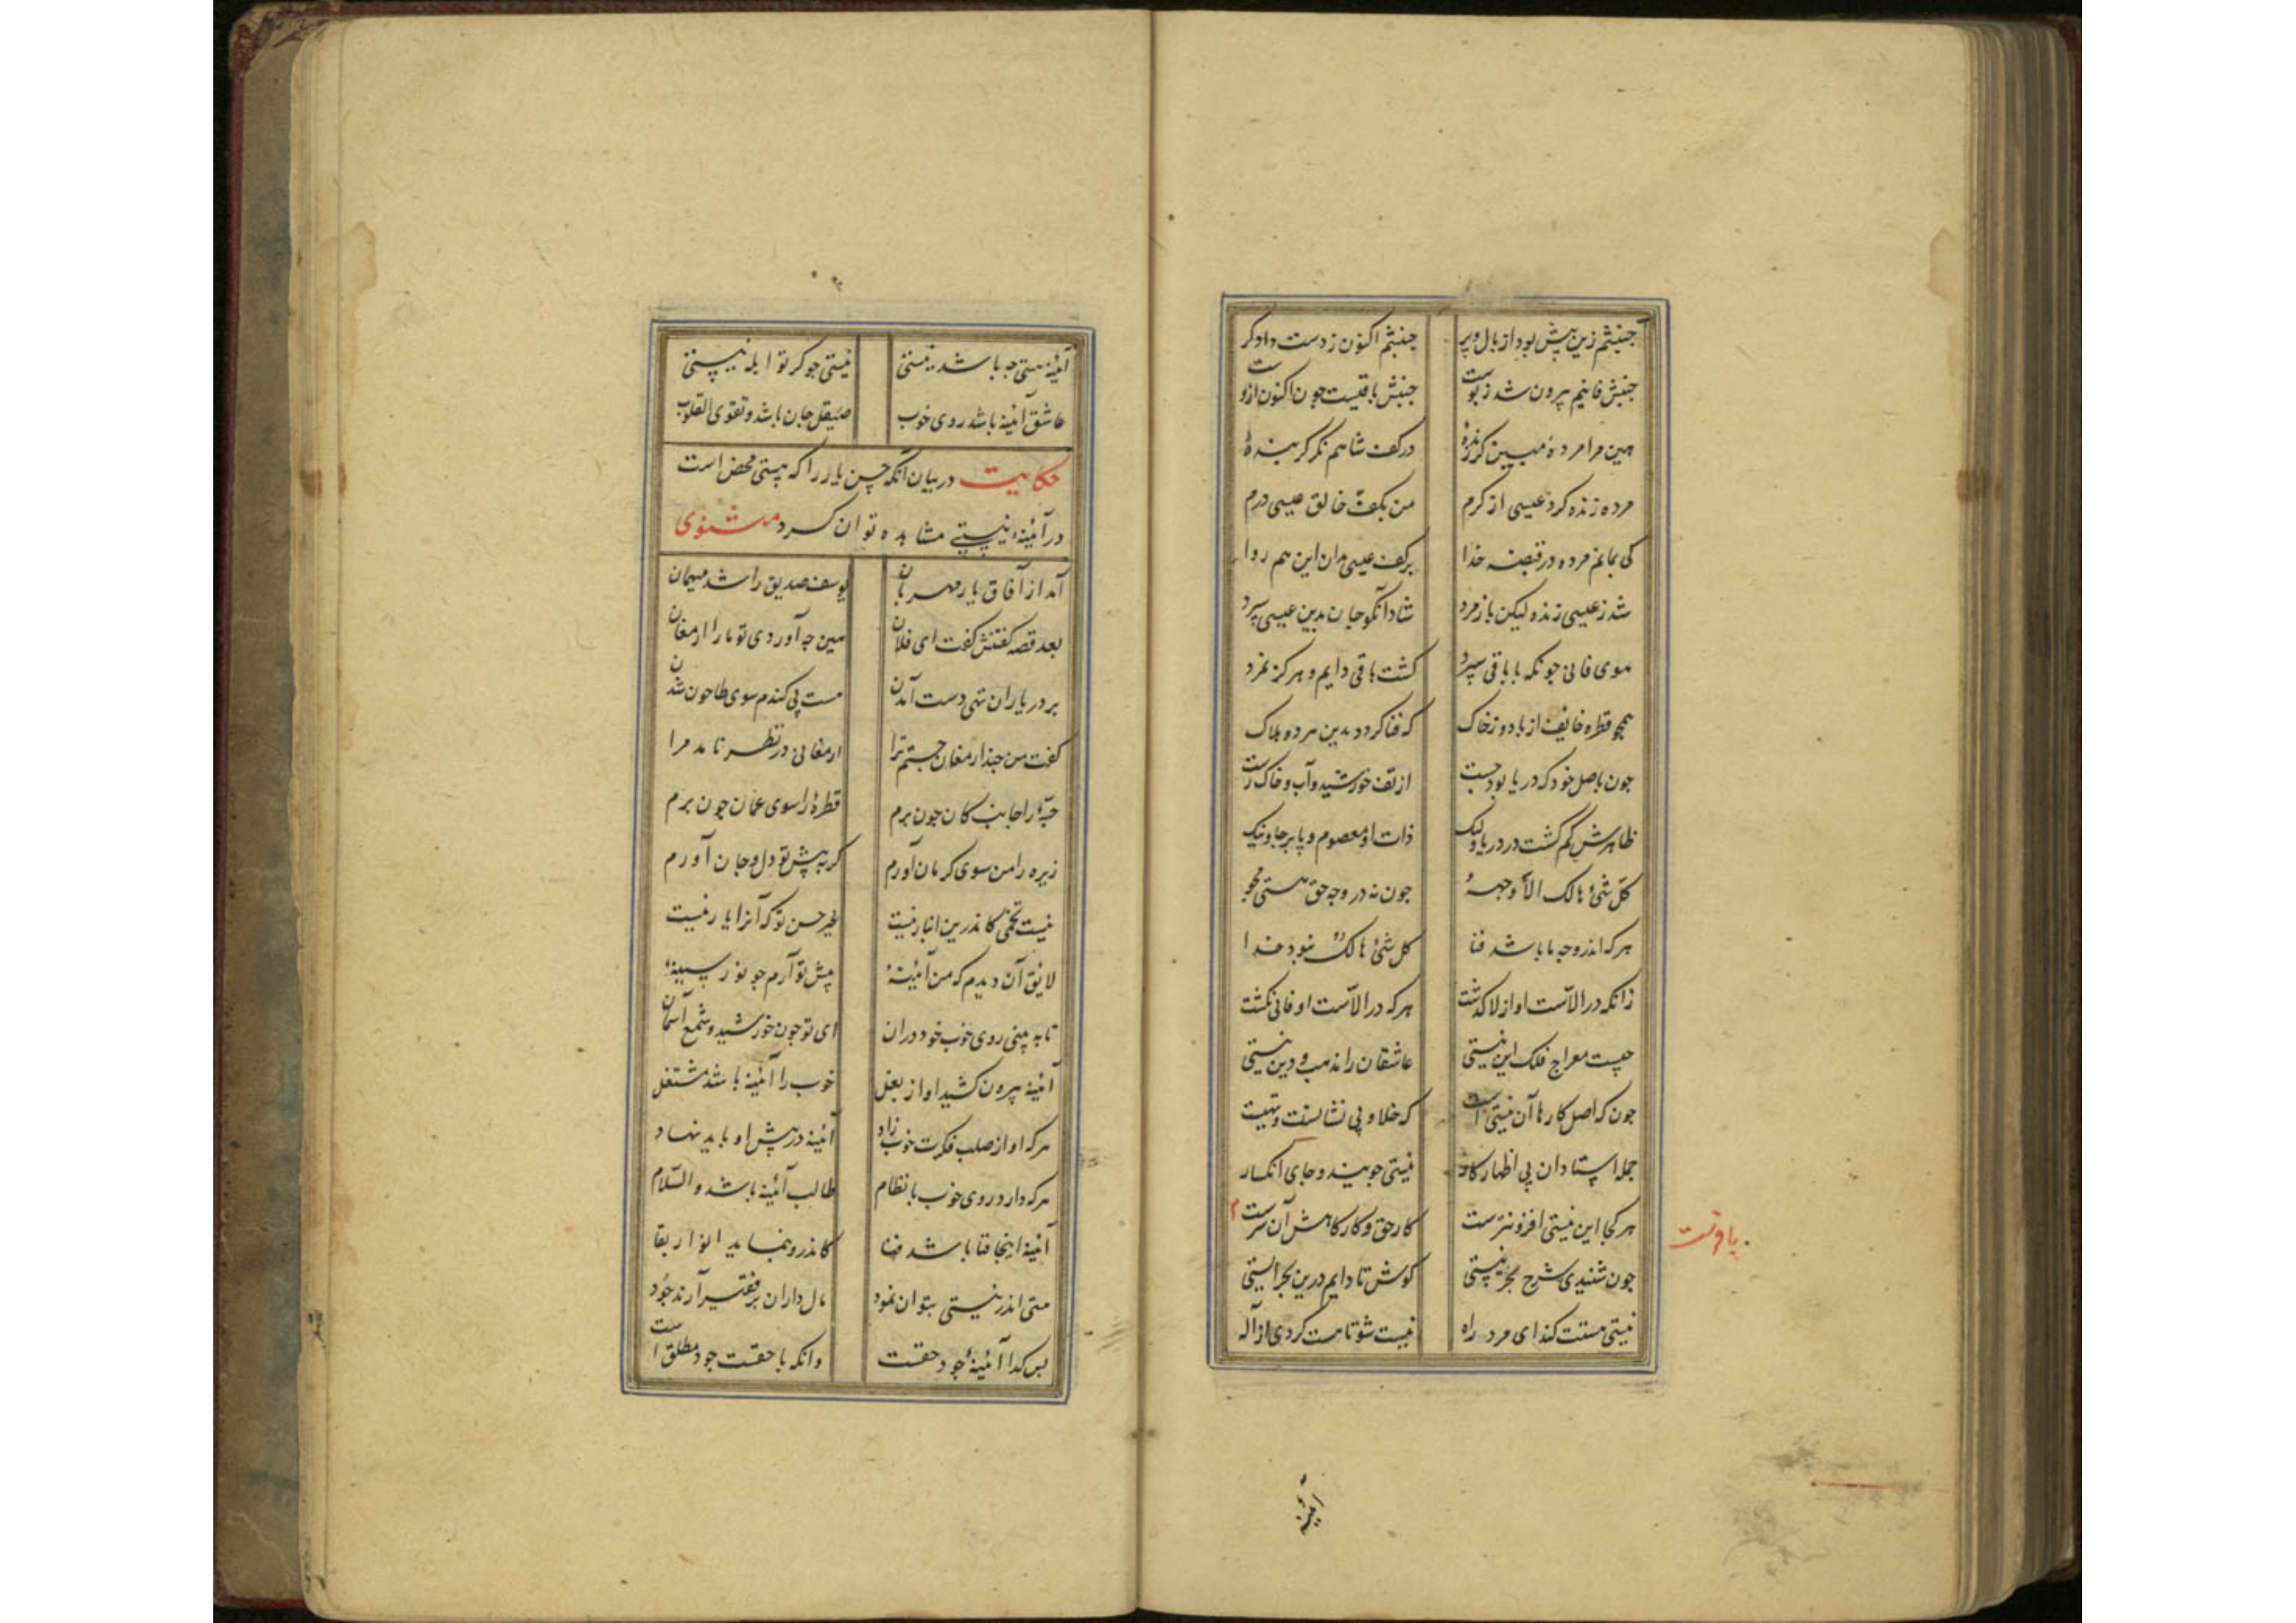 جنبشم زین پیش بود از بال و پر جنبشم اکنون ز دست دادگر
جنبش فانیم بیرون شد ز پوست جنبش باقیست جون اکنون ازوست
هین مرا مرده مبین کر زندهٔ در کف شاهم نکر کر بندهٔ
مرده زنده کرد عیسی از کرم من بکف خالق عیسی درم
کی بمانم مرده در قبضه خدا بر کف عیسی مدان این هم روا
شد ز عیسی زنده لیکن باز مرد شاد آنکو جان بدین عیسی سپرد
هوی فانی جونکه با باقی سپرد کشت باقی دایم و هرکز نمرد
همچو قطره خایف از باد و ز خاک که فنا کردد بدین هر دو هلاک
جون باصل خود که دریا بود جست از تف خورشید و آب و خاک رست
ظاهرش کم کشت در دریا ولیک ذات او معصوم و پا برجا و نیک
کل شئ هالک الا وجههٔ جون نه در وجه حق هستی مجو
هر که اندر وجه ما باشد فنا کل شئ هالک نبود خدا
زانکه در الاست او از لا کذشت هر که در الاست او فانی نکشت
چیست معراج فلک این نیستی عاشقان را مذهب و دین نیستی
جون که اصل کارها آن نیستی است که خلا و بی نشانست و تهیست
جمله استادان پی اظهار کار نیستی جویند و جای انکسار
هر کجا این نیستی افزونترست کار حق و کارکاهش آن سرست
یافرتست
جون شنیدی شرح بحر نیستی کوش تا دایم درین بحر ایستی
نیستی هستت کند ای مرد راه نیست شو تا هست کردی از آله
آئینه
آئینهٔ هستی چه باشد نیستی نیستی جو کر تو ابله نیستی
عاشق آئینه باشد روی خوب صیقل جان باشد و تقوی القلوب
حکایت در بیان آنکه حسن یار را که هستی محض است
در آئینهٔ نیستی مشاهده توان کرد مثنوی
آمد از آفاق یار مهربان یوسف صدیق را شد میهمان
بعد قصه کفتنش کفت ای فلان هین چه آوردی تو ما را ارمغان
بر در یاران تهی دست آمدن هست بی کندم سوی طاحون شدن
کفت من چند ارمغان جستم ترا ارمغانی در نظر نامد مرا
حبهٔ را جانب کان چون برم قطرهٔ را سوی عمان چون برم
زیره را من سوی کرمان آورم کر به پیش تو دل و جان آورم
نیست تخمی کاندرین انبار نیست غیر حسن تو که آنرا یار نیست
لایق آن دیدم که من آئینهٔ پیش تو آرم جو نور سینهٔ
تا به بینی روی خوب خود در آن ای تو چون خورشید و شمع آسمان
آئینه بیرون کشید او از بغل خوب را آئینه باشد مشتغل
هر که او از صلب فکرت خوب زاد آئینه در پیش او باید نهاد
هر که دارد روی خوب با نظام طالب آئینه باشد والسلام
آئینه اینجا فنا باشد فنا کاندرو بنماید انوار بقا
هستی اندر نیستی بتوان نمود مال داران بر فقیر آرند جود
پس کدا آئینهٔ جود حقست وانکه با حقست جود مطلق است